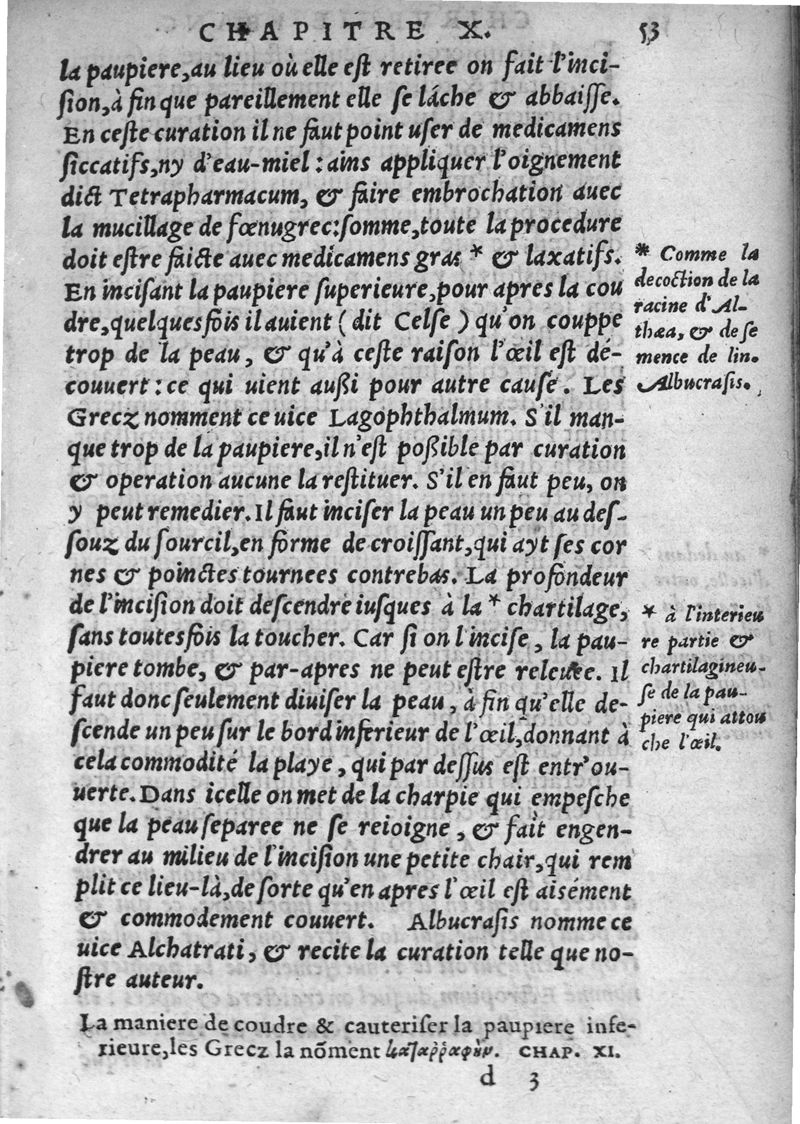 CHAPITRE X. 53
la paupiere,au lieu où elle est retiree on fait l'inci-
sion,à fin que pareillement elle se láche & abbaisse.
En ceste curation il ne faut point user de medicamens
siccatifs,ny d'eau-miel : ains appliquer l'oignement
dict Tetrapharmacum, & faire embrochation auec
la mucillage de fœnugrec:somme,toute la procedure
doit estre faicte auec medicamens gras * & laxatifs.
En incisant la paupiere superieure,pour apres la cou
dre,quelquesfois il auient (dit Celse) qu'on couppe
trop de la peau, & qu'à ceste raison l'œil est dé-
couuert : ce qui uient außi pour autre cause. Les
Grecz nomment ce uice Lagophthalmum. S'il man-
que trop de la paupiere,il n'est poßible par curation
& operation aucune la restituer. S'il en faut peu, on
y peut remedier. Il faut inciser la peau un peu au des-
souz du sourcil,en forme de croissant,qui ayt ses cor
nes & poinctes tournees contrebas. La profondeur
de l'incision doit descendre iusques à la * chartilage,
sans toutesfois la toucher. Car si on l'incise, la pau-
piere tombe, & par-apres ne peut estre releuee. Il
faut donc seulement diuiser la peau, à fin qu'elle de-
scende un peu sur le bord inferieur de l'œil,donnant à
cela commodité la playe, qui par dessus est entr'ou-
uerte. Dans icelle on met de la charpie qui empesche
que la peau separee ne se reioigne, & fait engen-
drer au milieu de l'incision une petite chair,qui rem
plit ce lieu-là,de sorte qu'en apres l'œil est aisément
& commodement couuert. Albucrasis nomme ce
uice Alchatrati, & recite la curation telle que no-
stre auteur.
* Comme la
decoction de la
racine d'Al-
thæa, & de se
mence de lin.
Albucrasis.
* à l'interieu
re partie &
chartilagineu-
se de la pau-
piere qui attou
che l'œil.
La maniere de coudre & cauteriser la paupiere infe-
rieure,les Grecz la nõment καταῤῥαφὴν. CHAP. XI.
d 3